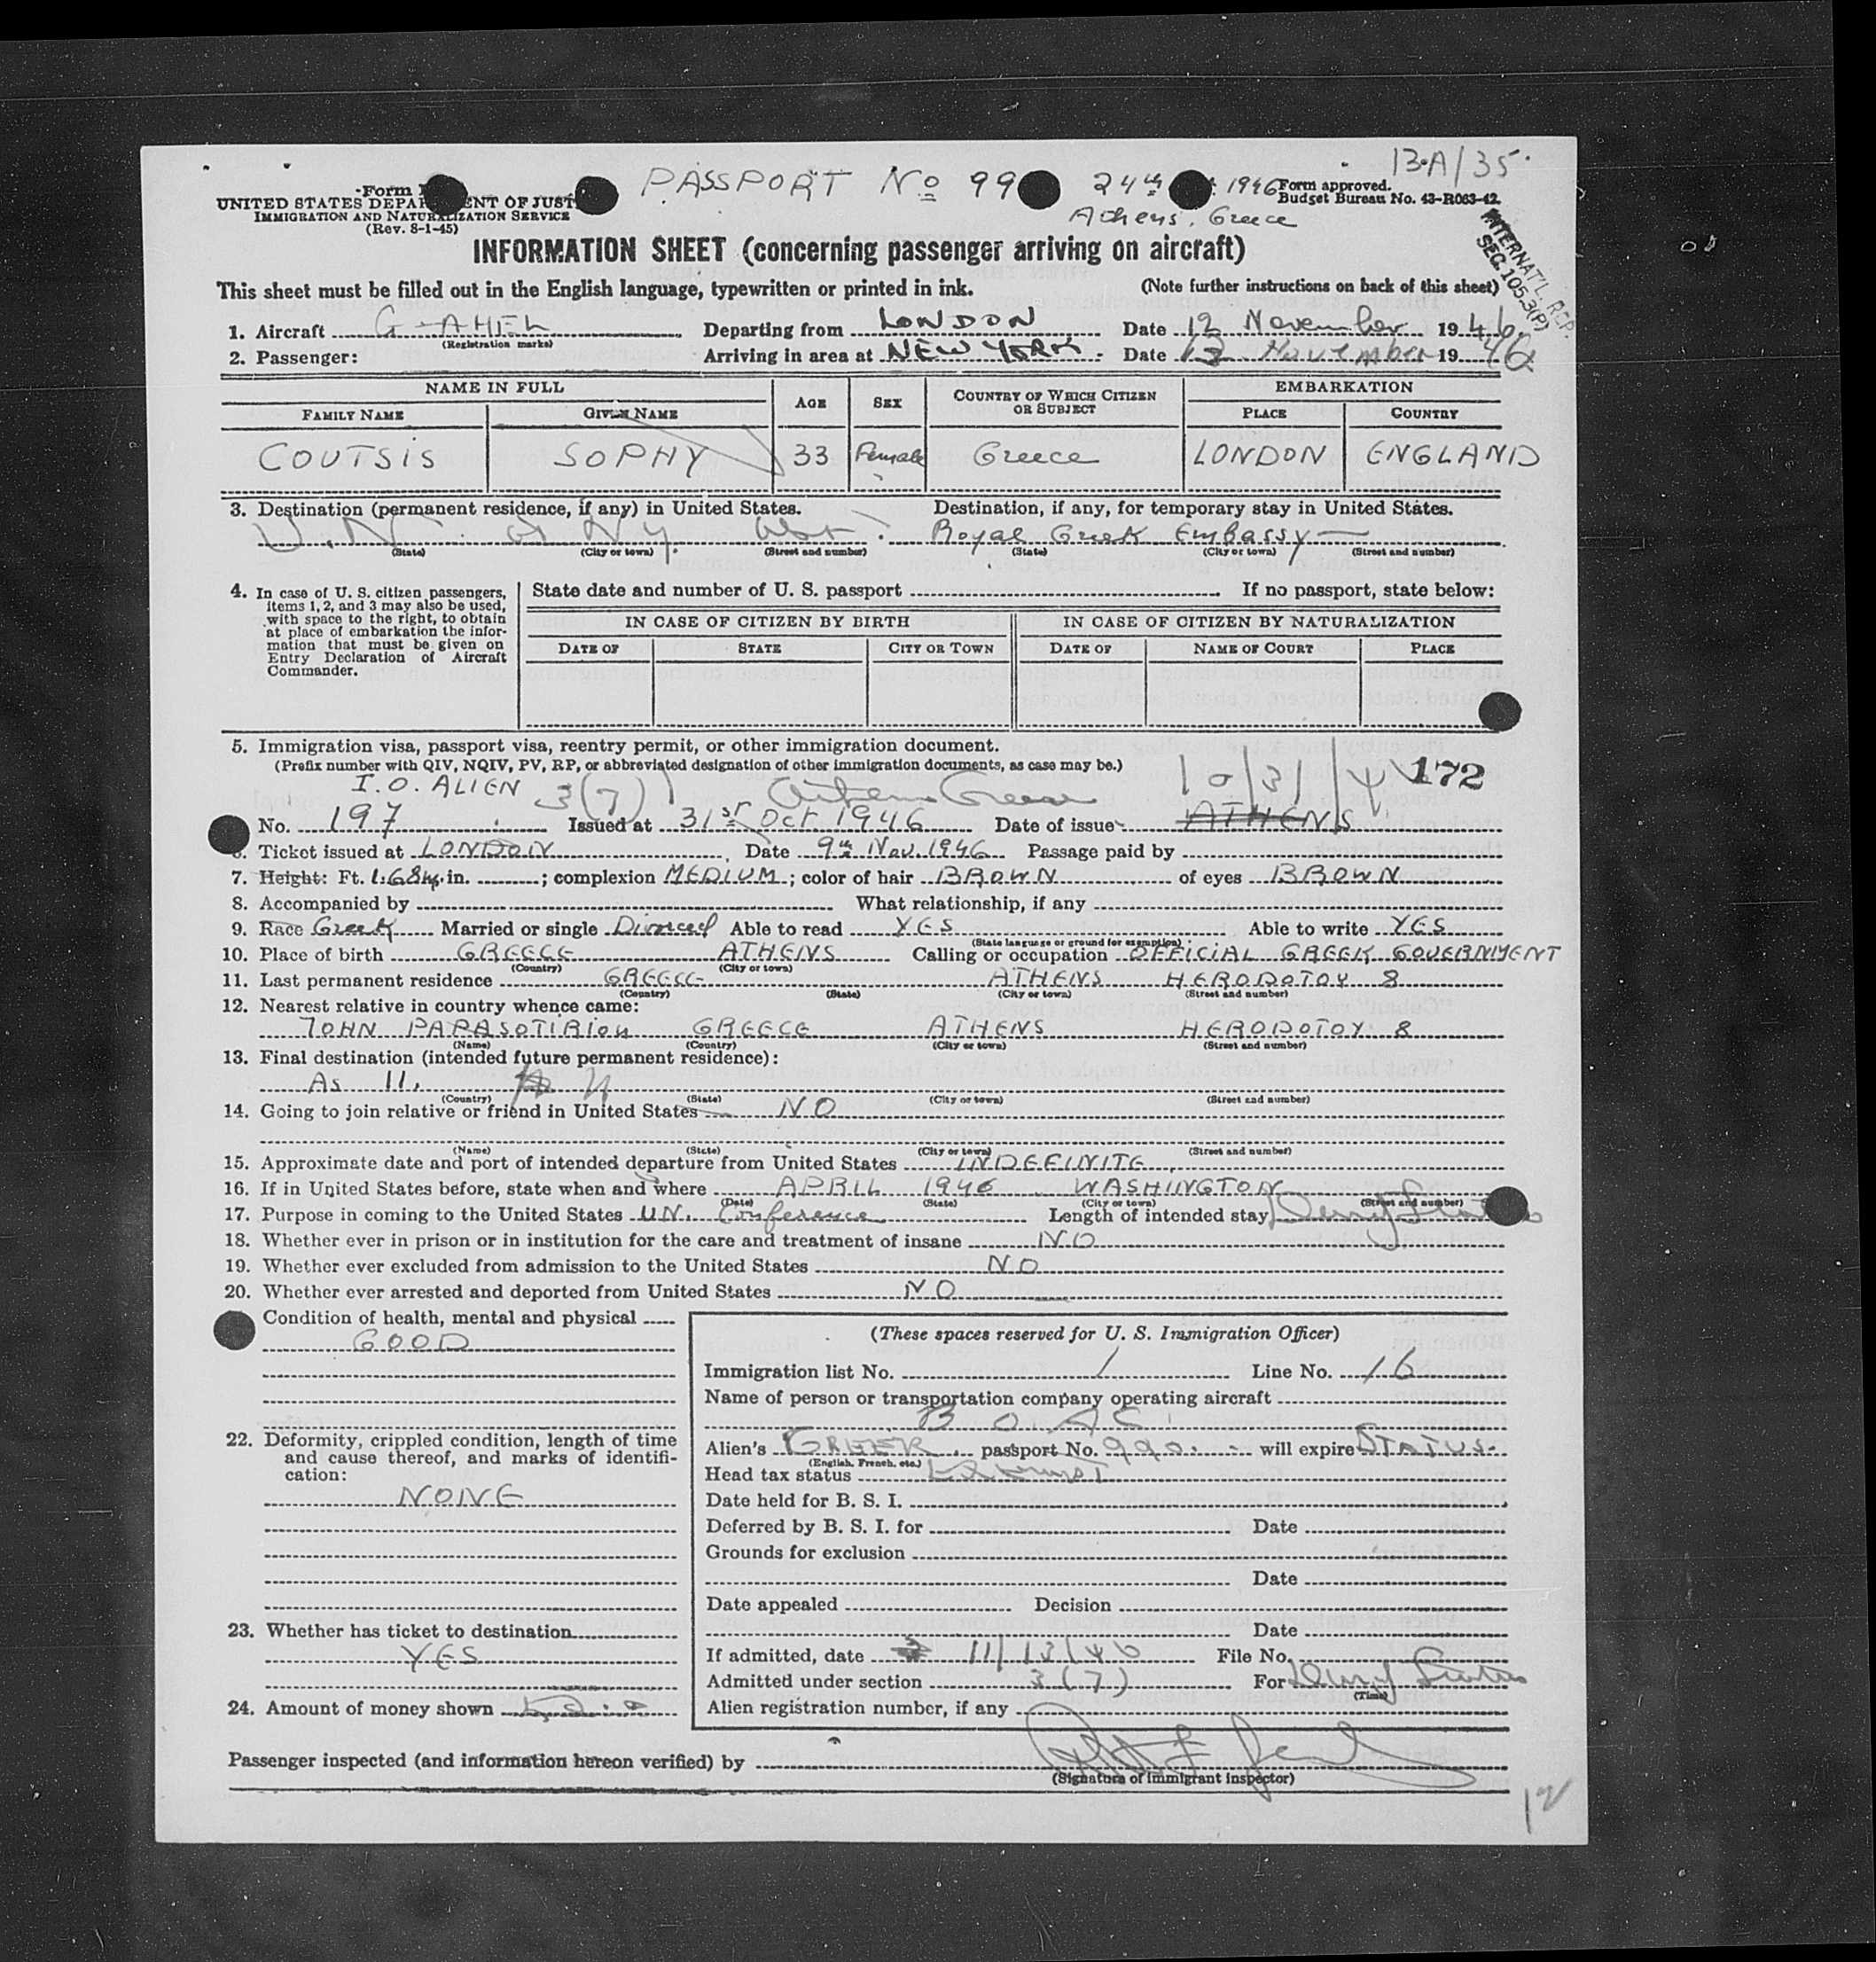 13-A/35.
PASSPORT No 99 24th 1946
Athens, Greece
Form
UNITED STATES DEPARTMENT OF JUSTICE
IMMIGRATION AND NATURALIZATION SERVICE
(Rev. 8-1-45)
Form approved.
Budget Bureau No. 43-R063-42.
INTERNAT'L REP.
SEC. 105.3(P)
INFORMATION SHEET (concerning passenger arriving on aircraft)
This sheet must be filled out in the English language, typewritten or printed in ink. (Note further instructions on back of this sheet)
1. Aircraft G-AHEL Departing from LONDON Date 12 November 1946.
(Registration marks)
2. Passenger: Arriving in area at NEW YORK Date 13 November 1946
NAME IN FULL AGE SEX COUNTRY OF WHICH CITIZEN OR SUBJECT EMBARKATION
FAMILY NAME GIVEN NAME PLACE COUNTRY
COUTSIS SOPHY 33 Female Greece LONDON ENGLAND
3. Destination (permanent residence, if any) in United States. Destination, if any, for temporary stay in United States.
U.N. NY Royal Greek Embassy
(State) (City or town) (Street and number) (State) (City or town) (Street and number)
4. In case of U. S. citizen passengers, items 1, 2, and 3 may also be used, with space to the right, to obtain at place of embarkation the information that must be given on Entry Declaration of Aircraft Commander.
State date and number of U. S. passport If no passport, state below:
IN CASE OF CITIZEN BY BIRTH IN CASE OF CITIZEN BY NATURALIZATION
DATE OF STATE CITY OR TOWN DATE OF NAME OF COURT PLACE
5. Immigration visa, passport visa, reentry permit, or other immigration document.
(Prefix number with QIV, NQIV, PV, RP, or abbreviated designation of other immigration documents, as case may be.)
I.O. ALIEN 3(7) Athens Greece 10/31/4 172
No. 197 Issued at 31st Oct 1946 Date of issue ATHENS
6. Ticket issued at LONDON Date 9th Nov. 1946 Passage paid by
7. Height: Ft. 1.68m. in. ; complexion MEDIUM ; color of hair BROWN of eyes BROWN
8. Accompanied by What relationship, if any
9. Race Greek Married or single Divorced Able to read YES Able to write YES
(State language or ground for exemption)
10. Place of birth GREECE ATHENS Calling or occupation OFFICIAL GREEK GOVERNMENT
(Country) (City or town)
11. Last permanent residence GREECE ATHENS HERODOTOY 8
(Country) (State) (City or town) (Street and number)
12. Nearest relative in country whence came:
JOHN PAPASOTIRIOU GREECE ATHENS HERODOTOY 8
(Name) (Country) (City or town) (Street and number)
13. Final destination (intended future permanent residence):
As 11.
(Country) (State) (City or town) (Street and number)
14. Going to join relative or friend in United States NO
(Name) (State) (City or town) (Street and number)
15. Approximate date and port of intended departure from United States INDEFINITE
16. If in United States before, state when and where APRIL 1946 WASHINGTON
(Date) (State) (City or town) (Street and number)
17. Purpose in coming to the United States UN. Conference Length of intended stay
18. Whether ever in prison or in institution for the care and treatment of insane NO
19. Whether ever excluded from admission to the United States NO
20. Whether ever arrested and deported from United States NO
Condition of health, mental and physical
GOOD
22. Deformity, crippled condition, length of time and cause thereof, and marks of identification:
NONE
23. Whether has ticket to destination
YES
24. Amount of money shown
(These spaces reserved for U. S. Immigration Officer)
Immigration list No. 1 Line No. 16
Name of person or transportation company operating aircraft
B O A C
Alien's GREEK passport No. 990 will expire STATUS
(English, French, etc.)
Head tax status
Date held for B. S. I.
Deferred by B. S. I. for Date
Grounds for exclusion
Date
Date appealed Decision
Date
If admitted, date 11/13/46 File No.
Admitted under section 3(7) For
(Time)
Alien registration number, if any
Passenger inspected (and information hereon verified) by
(Signature of immigrant inspector)
12